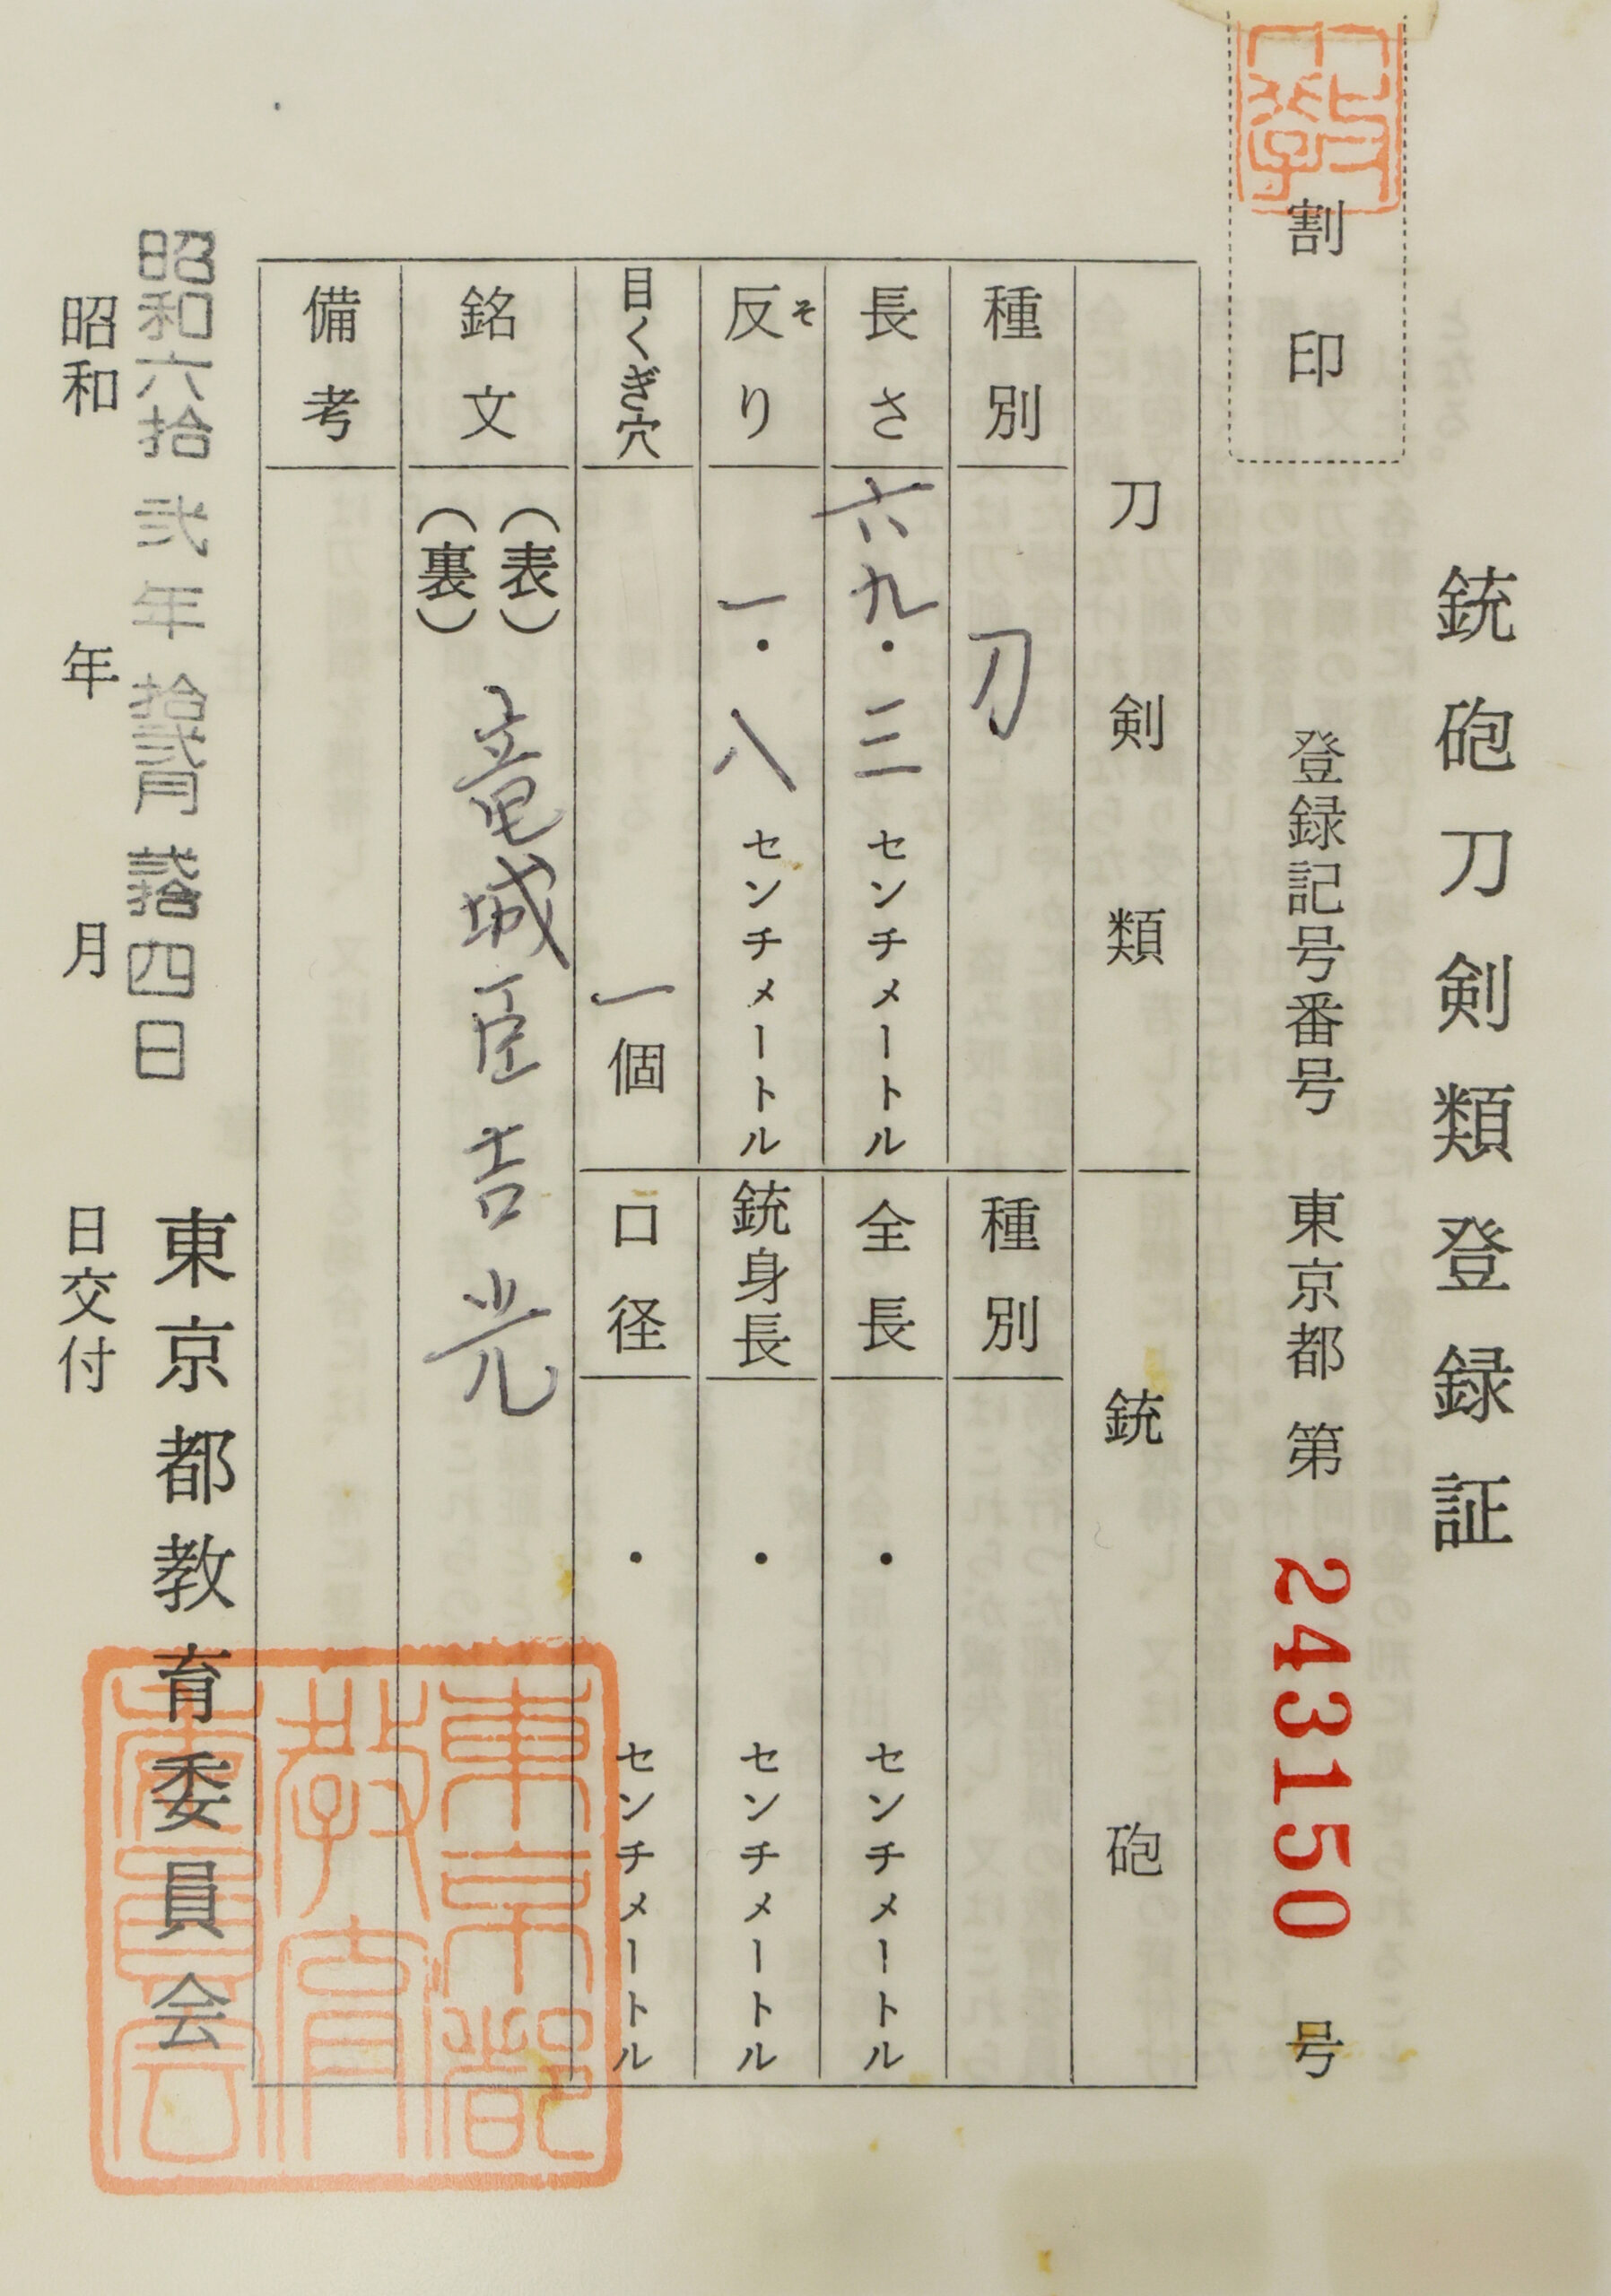 銃砲刀剣類登録証
割印
登録記号番号 東京都 第 243150 号
刀剣類
銃砲
種別 刀
種別
長さ 六九・三 センチメートル
全長 ・ センチメートル
反り そ 一・八 センチメートル
銃身長 ・ センチメートル
目くぎ穴 一個
口径 ・ センチメートル
銘文 (表) (裏) 竜城臣吉光
備考
東京都教育委員会
昭和六拾弐年拾弐月弐拾四日
昭和 年 月 日交付
東京都
教育
委員会